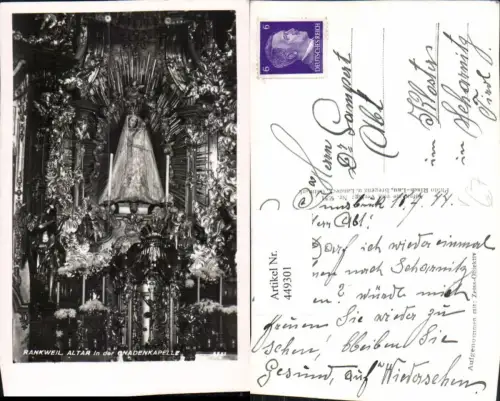 RANKWEIL. ALTAR in der GNADENKAPELLE
6
6
DEUTSCHES REICH
Herrn
Dr. Lampert
Abt
im Kloster
in Scharnitz
Tirol
Innsbruck 18.7.44.
Herr Abt!
Darf ich wieder einmal
nach Scharnitz
würdt mich
freuen Sie wieder zu
sehen! bleiben Sie
Gesund, auf Wiedersehen.
Artikel Nr.
449301
Photo Risch-Lau, Bregenz
Aufgenommen mit Zeiss-Objektiv